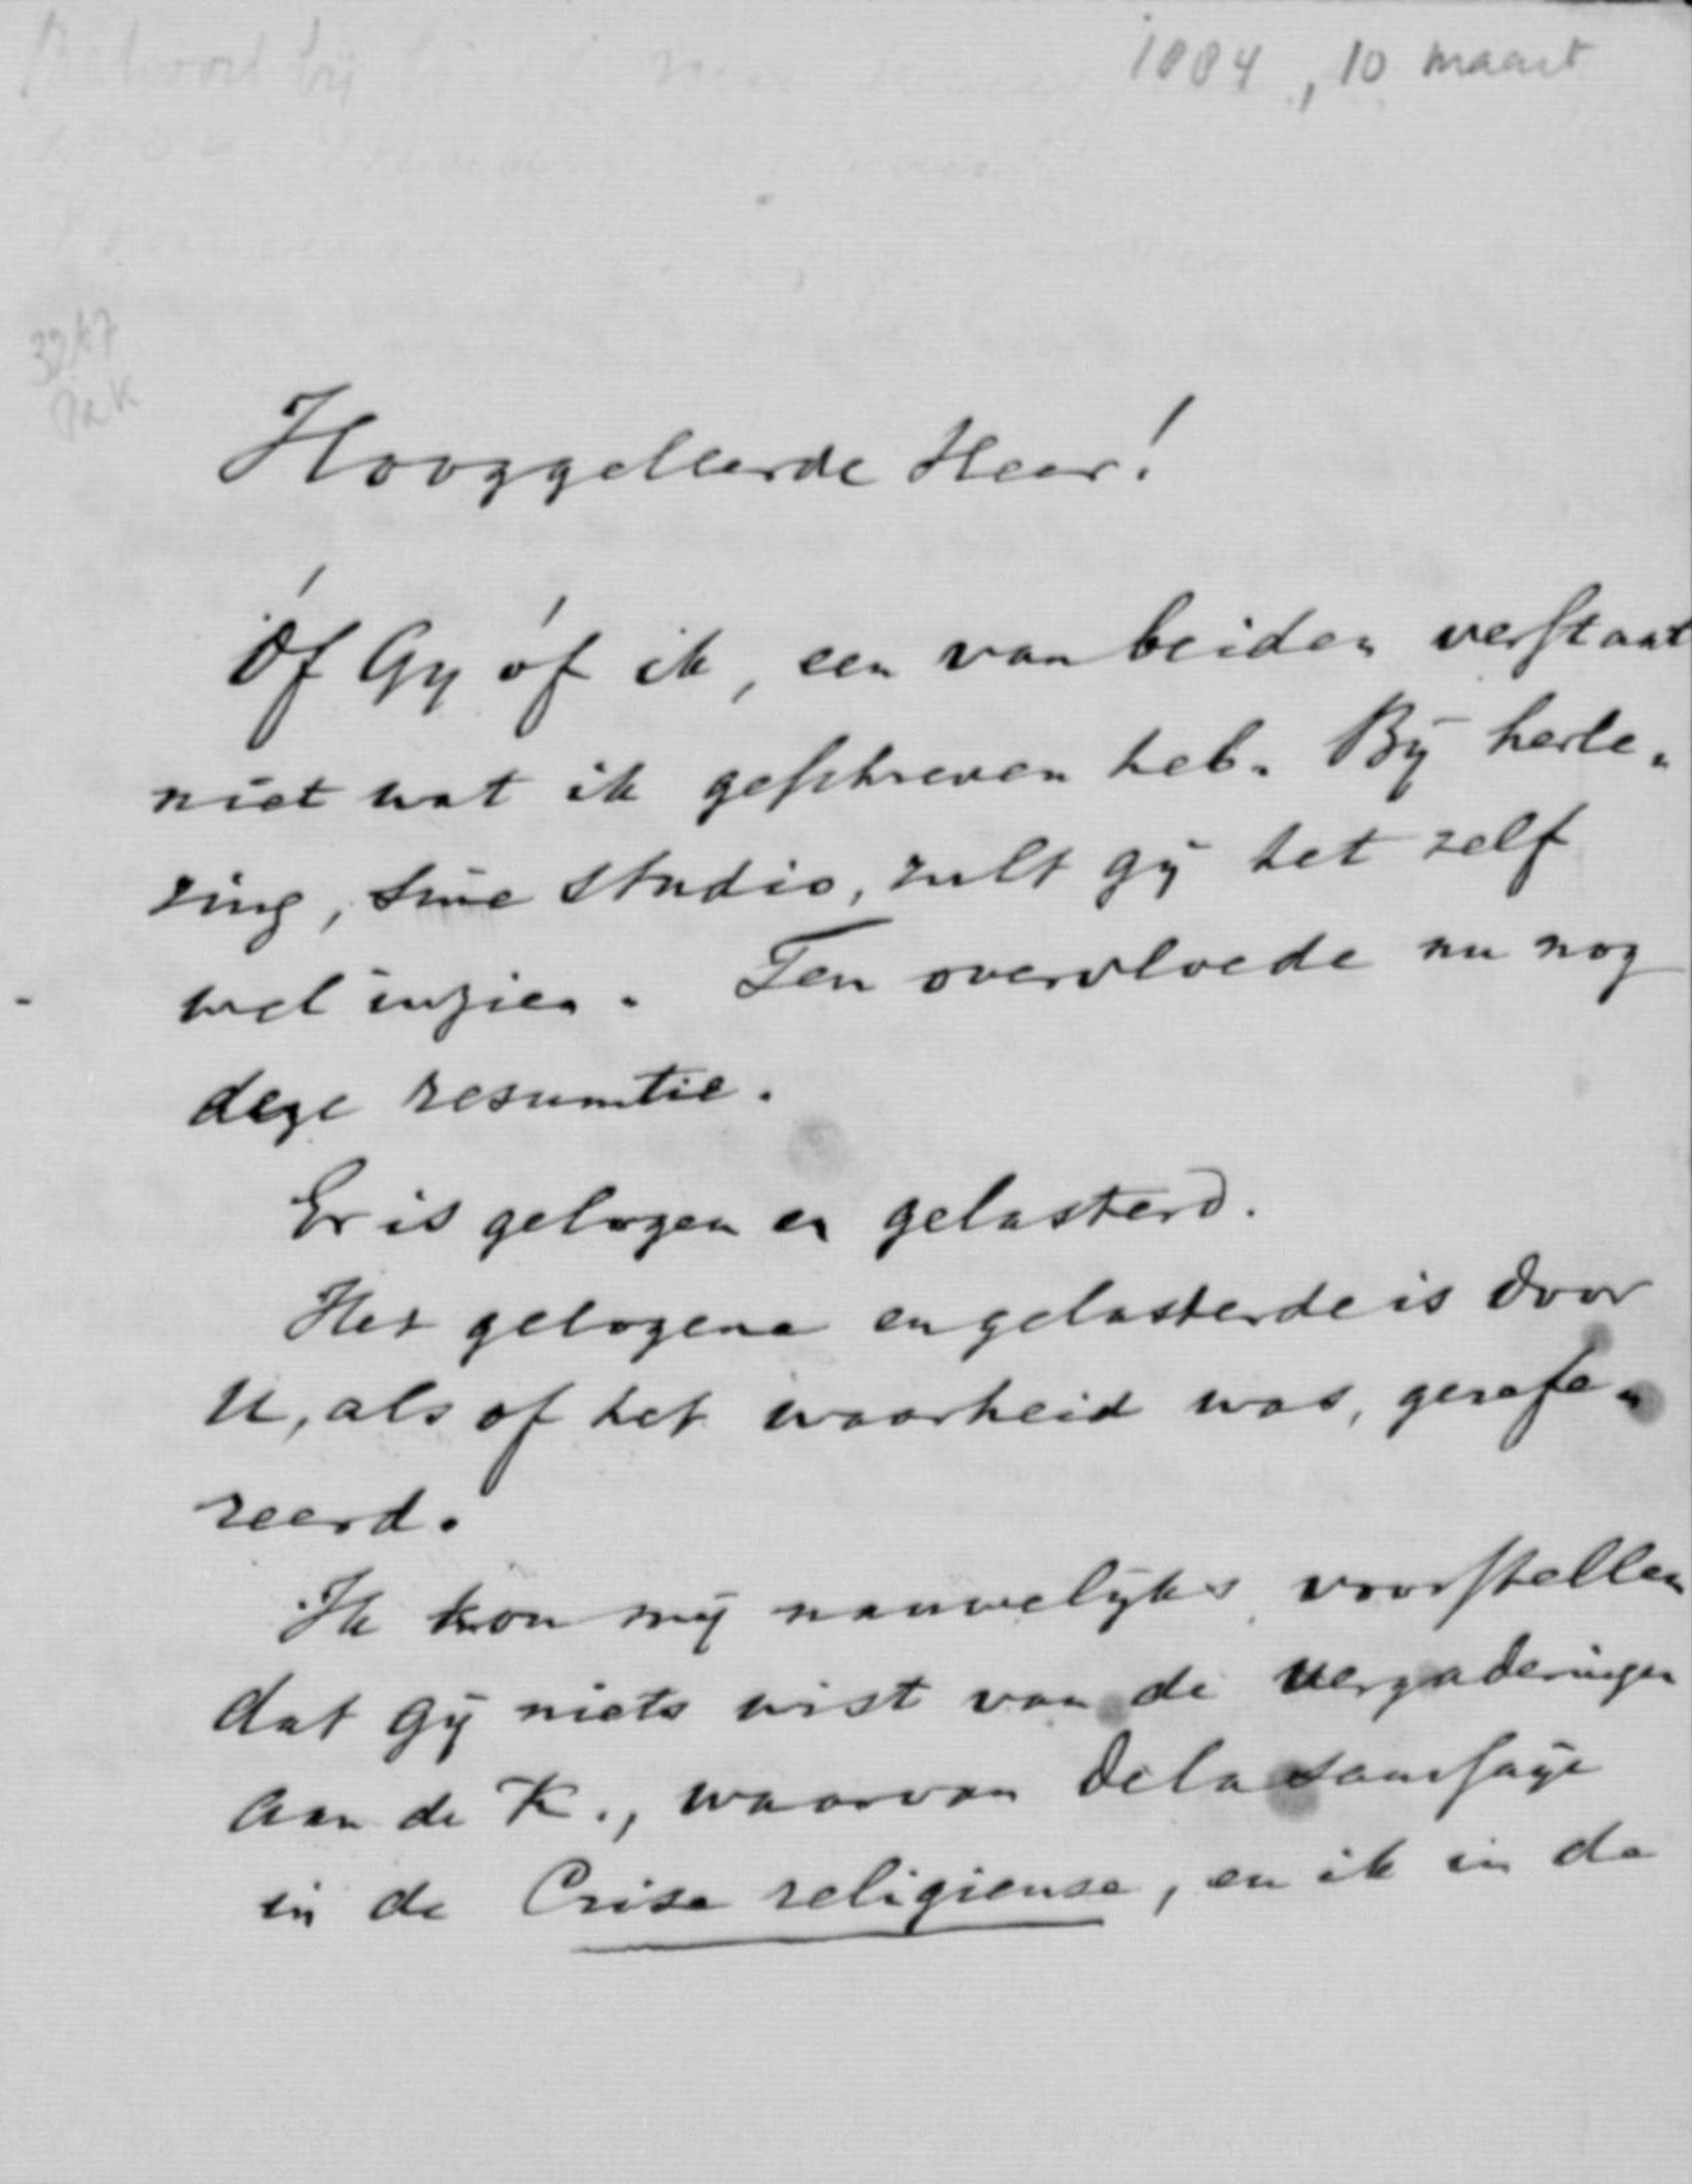 1884, 10 maart
Hooggeleerde Heer!
Óf Gy óf ik, een van beiden verstaat
niet wat ik geschreven heb. Bij herle-
zing, sine studio, zult gij het zelf
wel inzien. Ten overvloede nu nog
deze resumtie.
Er is gelogen en gelasterd.
Het gelogene en gelasterde is door
U, als of het waarheid was, gerefe-
reerd.
Ik kon mij nauwelijks voorstellen
dat gij niets wist van de vergaderingen
aan de K., waarvan de la Saussaye
in de Crise religieuse, en ik in de